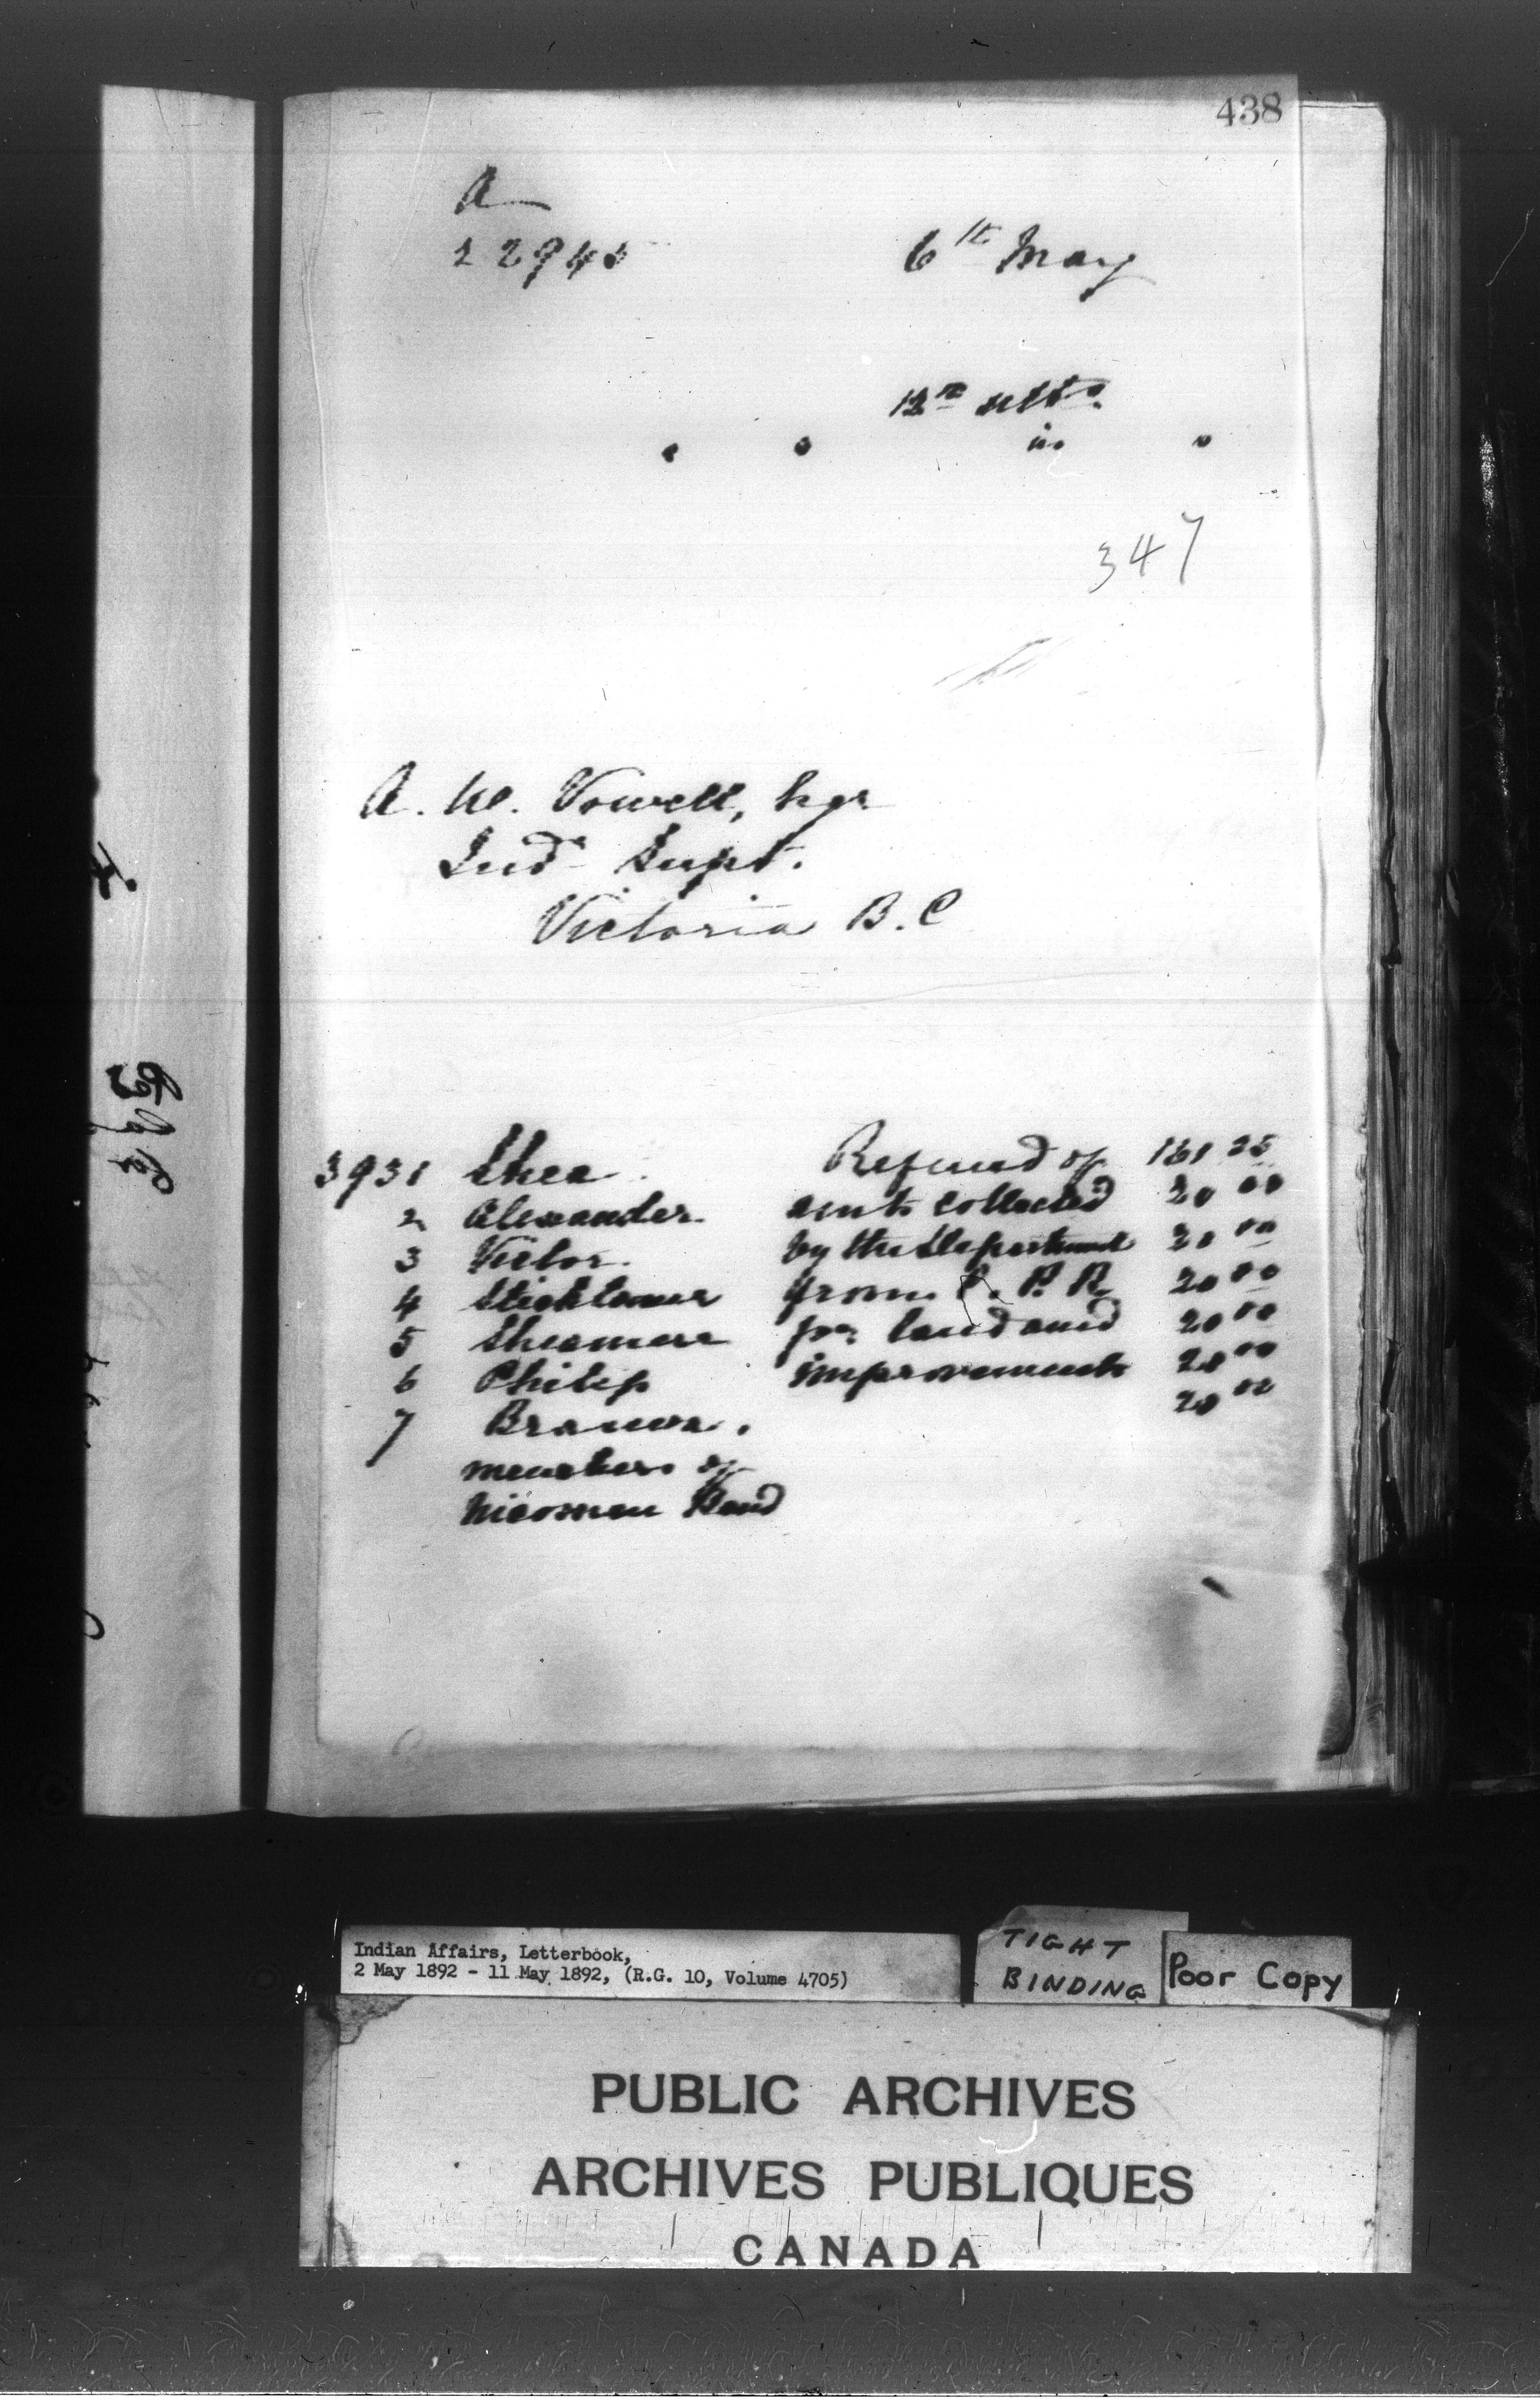 438
A
22945
6th May
12th ulto.
347
A. W. Vowell, Esqr
Ind. Supt.
Victoria B.C
3931 Shea Refund of 161 25
2 Alexander amts collected 20 00
3 Victor by the Department 20 00
4 from C.P.R. 20 00
5 for land and 20 00
6 Philip improvements 20 00
7 20 00
members of
Nicomen Band
Indian Affairs, Letterbook,
2 May 1892 - 11 May 1892, (R.G. 10, Volume 4705)
TIGHT
BINDING
Poor Copy
PUBLIC ARCHIVES
ARCHIVES PUBLIQUES
CANADA